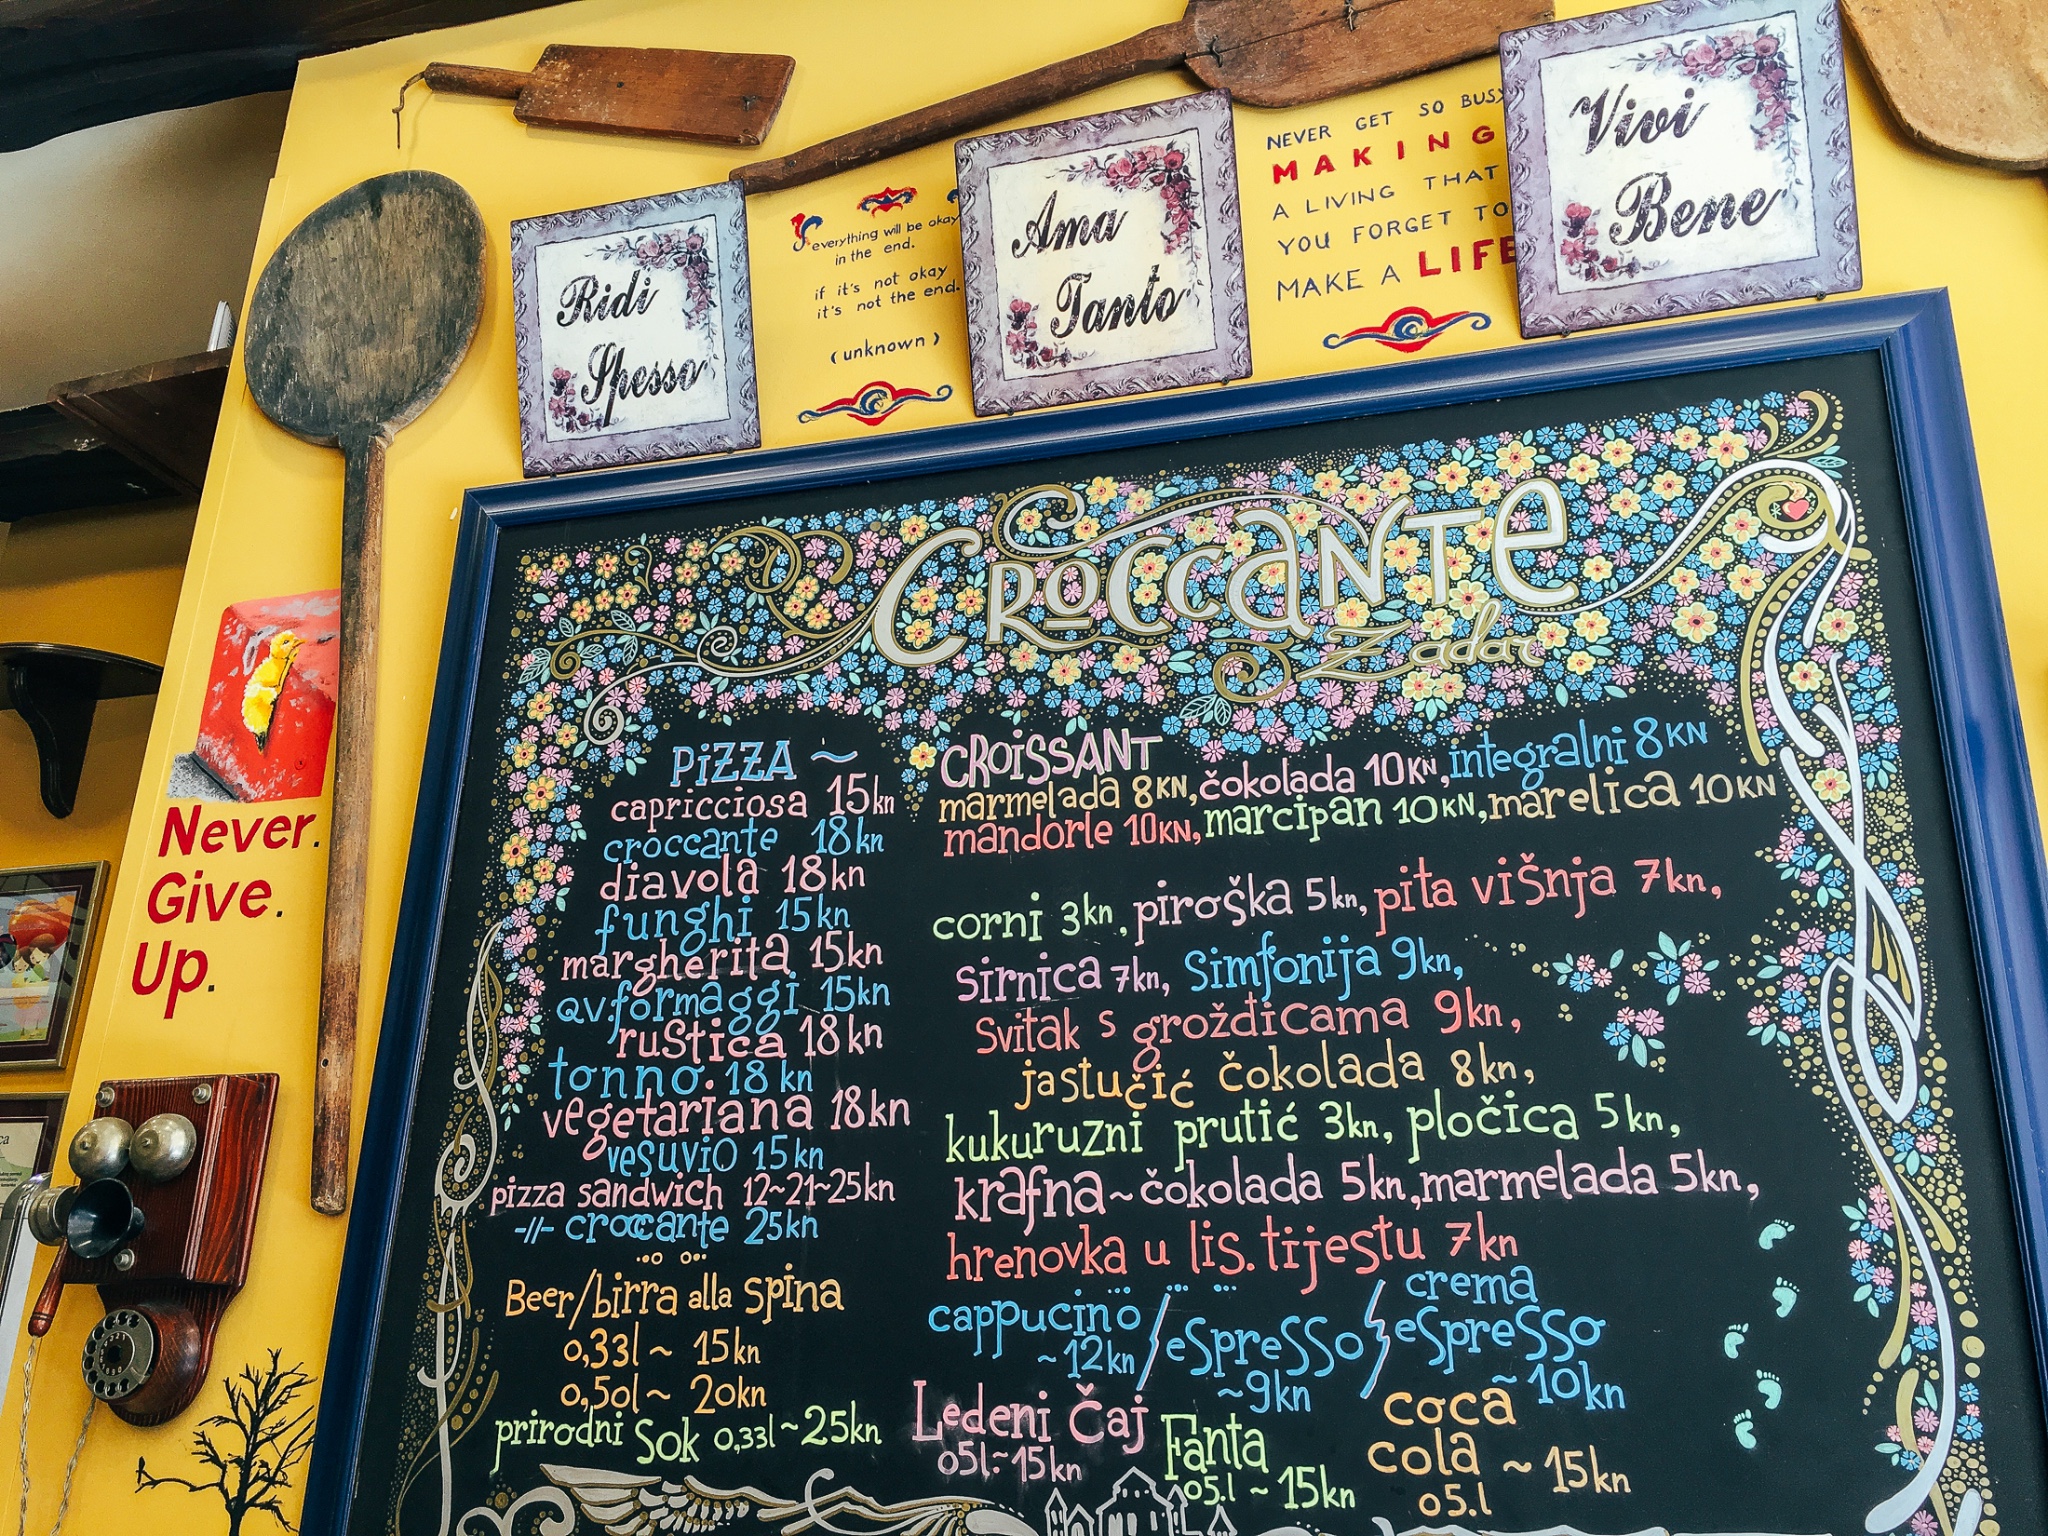 Ridi
Spesso
everything will be okay
in the end.
if it's not okay
it's not the end.
(unknown)
Ama
Tanto
NEVER GET SO BUSY
MAKING
A LIVING THAT
YOU FORGET TO
MAKE A LIFE
Vivi
Bene
Never.
Give.
Up.
CROCCANTE
Zadar
PIZZA ~
capricciosa 15kn
croccante 18kn
diavola 18kn
funghi 15kn
margherita 15kn
qv.formaggi 15kn
rustica 18kn
tonno 18kn
vegetariana 18kn
vesuvio 15kn
pizza sandwich 12~21~25kn
-//- croccante 25kn
Beer/birra alla spina
0,33l ~ 15kn
0,50l ~ 20kn
prirodni sok 0,33l ~ 25kn
CROISSANT
marmelada 8KN, čokolada 10KN, integralni 8KN
mandorle 10KN, marcipan 10KN, marelica 10KN
corni 3kn, piroška 5kn, pita višnja 7kn,
sirnica 7kn, simfonija 9kn,
svitak s grožđicama 9kn,
jastučić čokolada 8kn,
kukuruzni prutić 3kn, pločica 5kn,
krafna ~ čokolada 5kn, marmelada 5kn,
hrenovka u lis. tijestu 7kn
cappucino ~12kn / espresso ~9kn / crema espresso ~10kn
Ledeni Čaj
05l.~15kn
Fanta
05.l ~ 15kn
coca
cola ~ 15kn
05.l